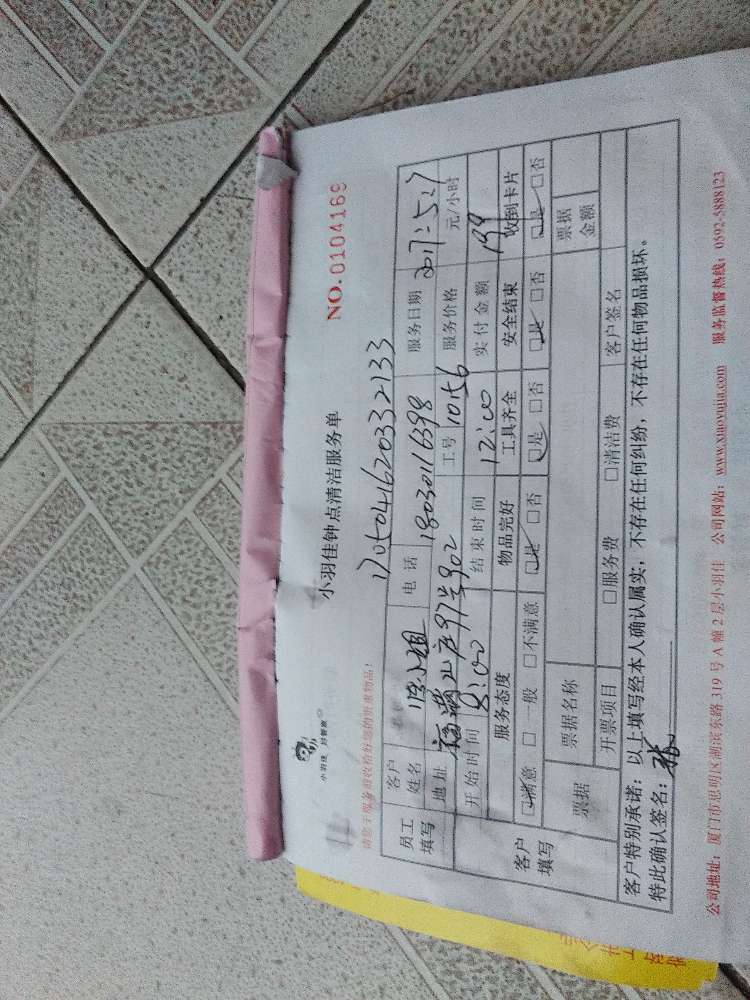 小羽佳 好管家
小羽佳钟点清洁服务单
NO.0104169
请您于服务前收拾好您的贵重物品!
1705041620332133
员工填写
客户姓名 小姐 电话 18030116398 服务日期 2017.5.27
地址 福满山庄97号902 工号 1056 服务价格 元/小时
开始时间 8:00 结束时间 12:00 实付金额 199
客户填写
服务态度 物品完好 工具齐全 安全结束 收到卡片
□满意 □一般 □不满意 □是 □否 □是 □否 □是 □否 □是 □否
票据 票据名称 票据金额
开票项目 □服务费 □清洁费 客户签名
客户特别承诺:以上填写经本人确认属实,不存在任何纠纷,不存在任何物品损坏。
特此确认签名:
公司地址:厦门市思明区湖滨东路319号A幢2层小羽佳 公司网站:www.xiaoyujia.com 服务监督热线:0592-5888123